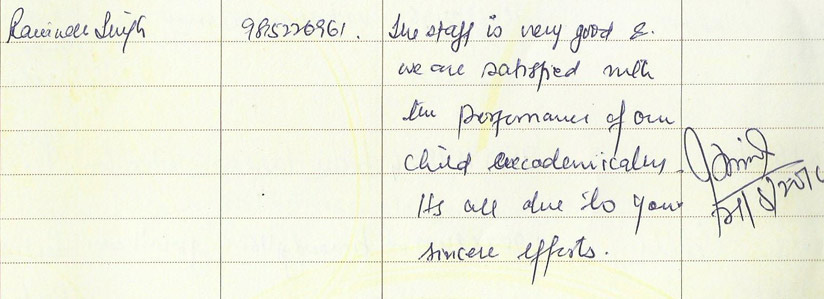 Ravinder Singh 9815226961. The staff is very good &
we are satisfied with
the performance of our
child accademically.
Its all due to your
sincere efforts.